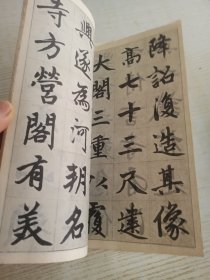 降詔復造其像
高七十三尺建
大閣三重以覆
興遂為河朔名
寺方營閣有美